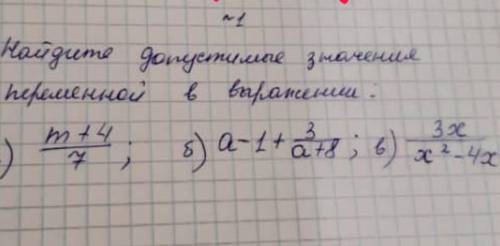 ~1
Найдите допустимые значения
переменной в выражении:
) \frac{m+4}{7}; б) a-1+\frac{3}{a+8}; в) \frac{3x}{x^2-4x}